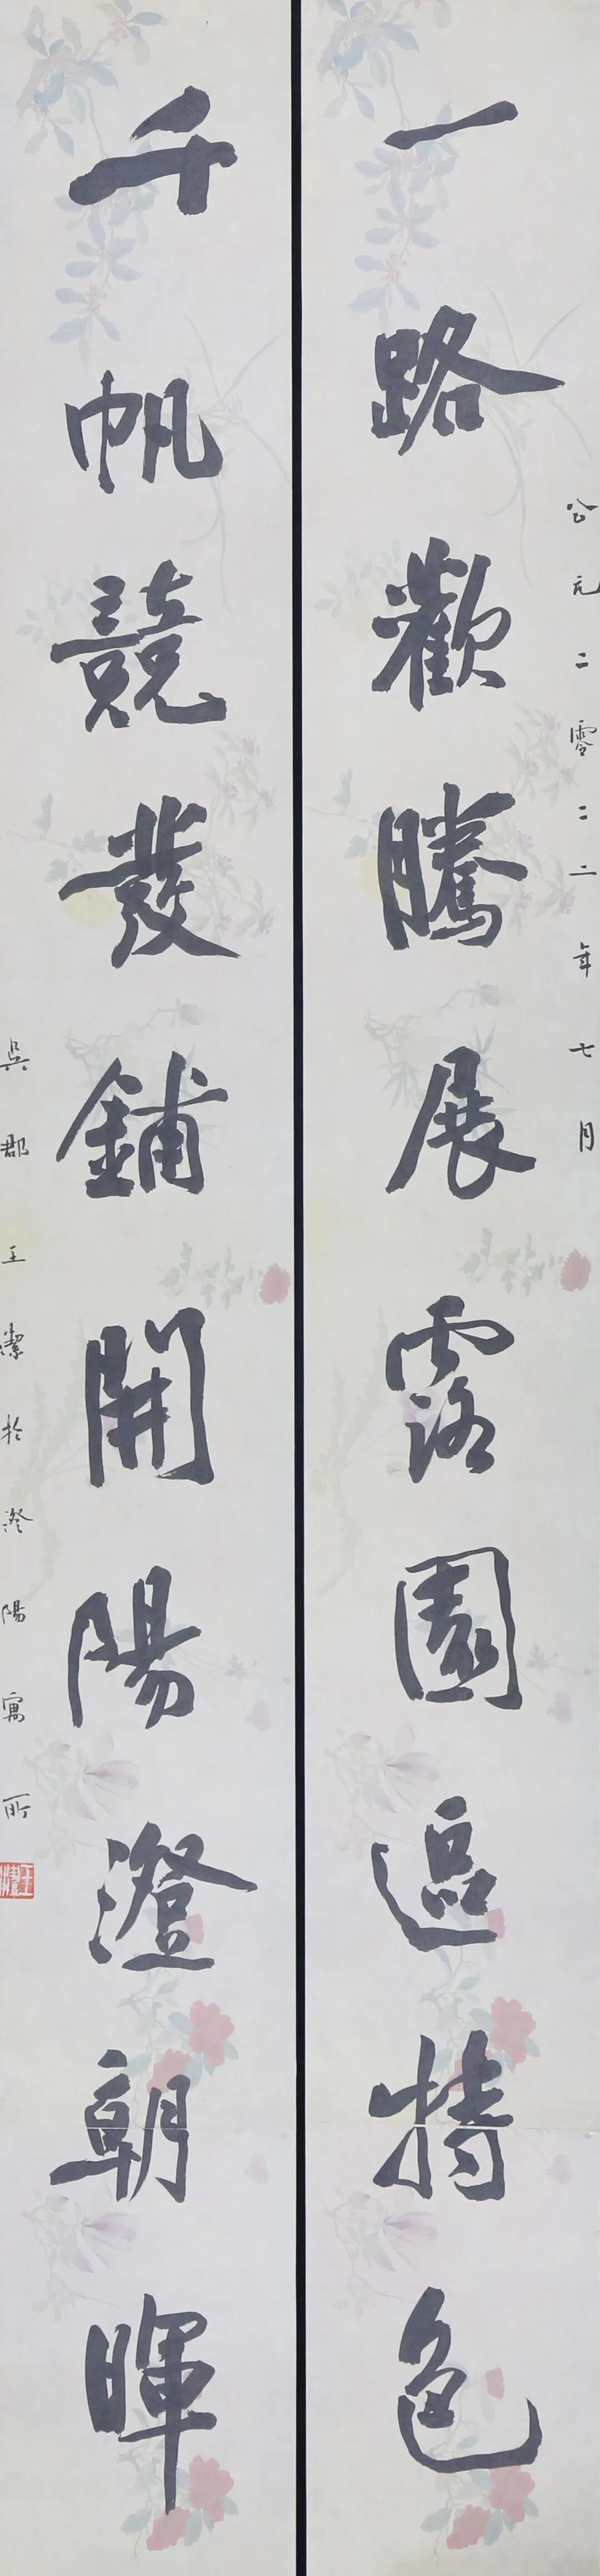 公元二零二二年七月
一路歡騰展露園區特色
千帆競發鋪開陽澄朝暉
吳郡王潔於澄陽寓所
王潔